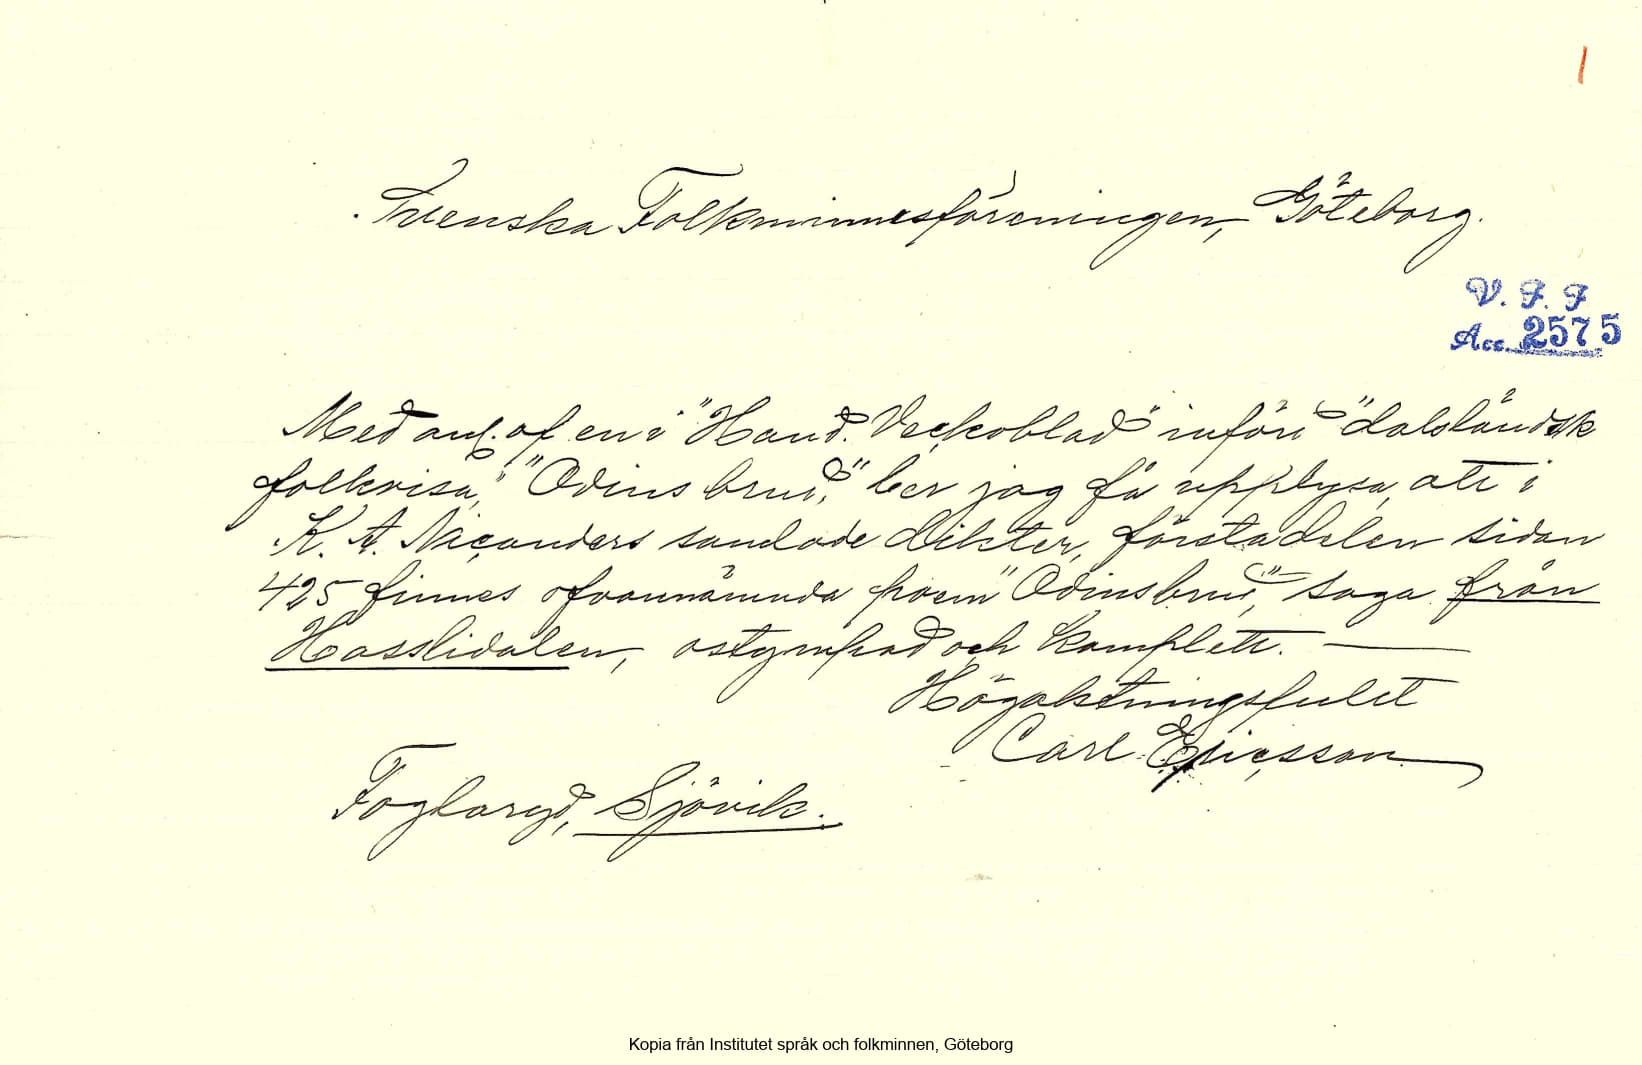 1
Svenska Folkminnesföreningen, Göteborg.
V. F. F
Acc. 2575
Med anl. af en i "Hand. Veckoblad" införd "dalsländsk
folkvisa," "Odins brud," ber jag få upplysa, att i
K. A. Nicanders samlade dikter, första delen sidan
425 finnes ofvannämnda poem "Odinsbrud", saga från
Hasslidalen, ostympad och komplett. —
Högaktningsfullt
Carl Ericsson
Foglaryd, Sjövik.
Kopia från Institutet språk och folkminnen, Göteborg